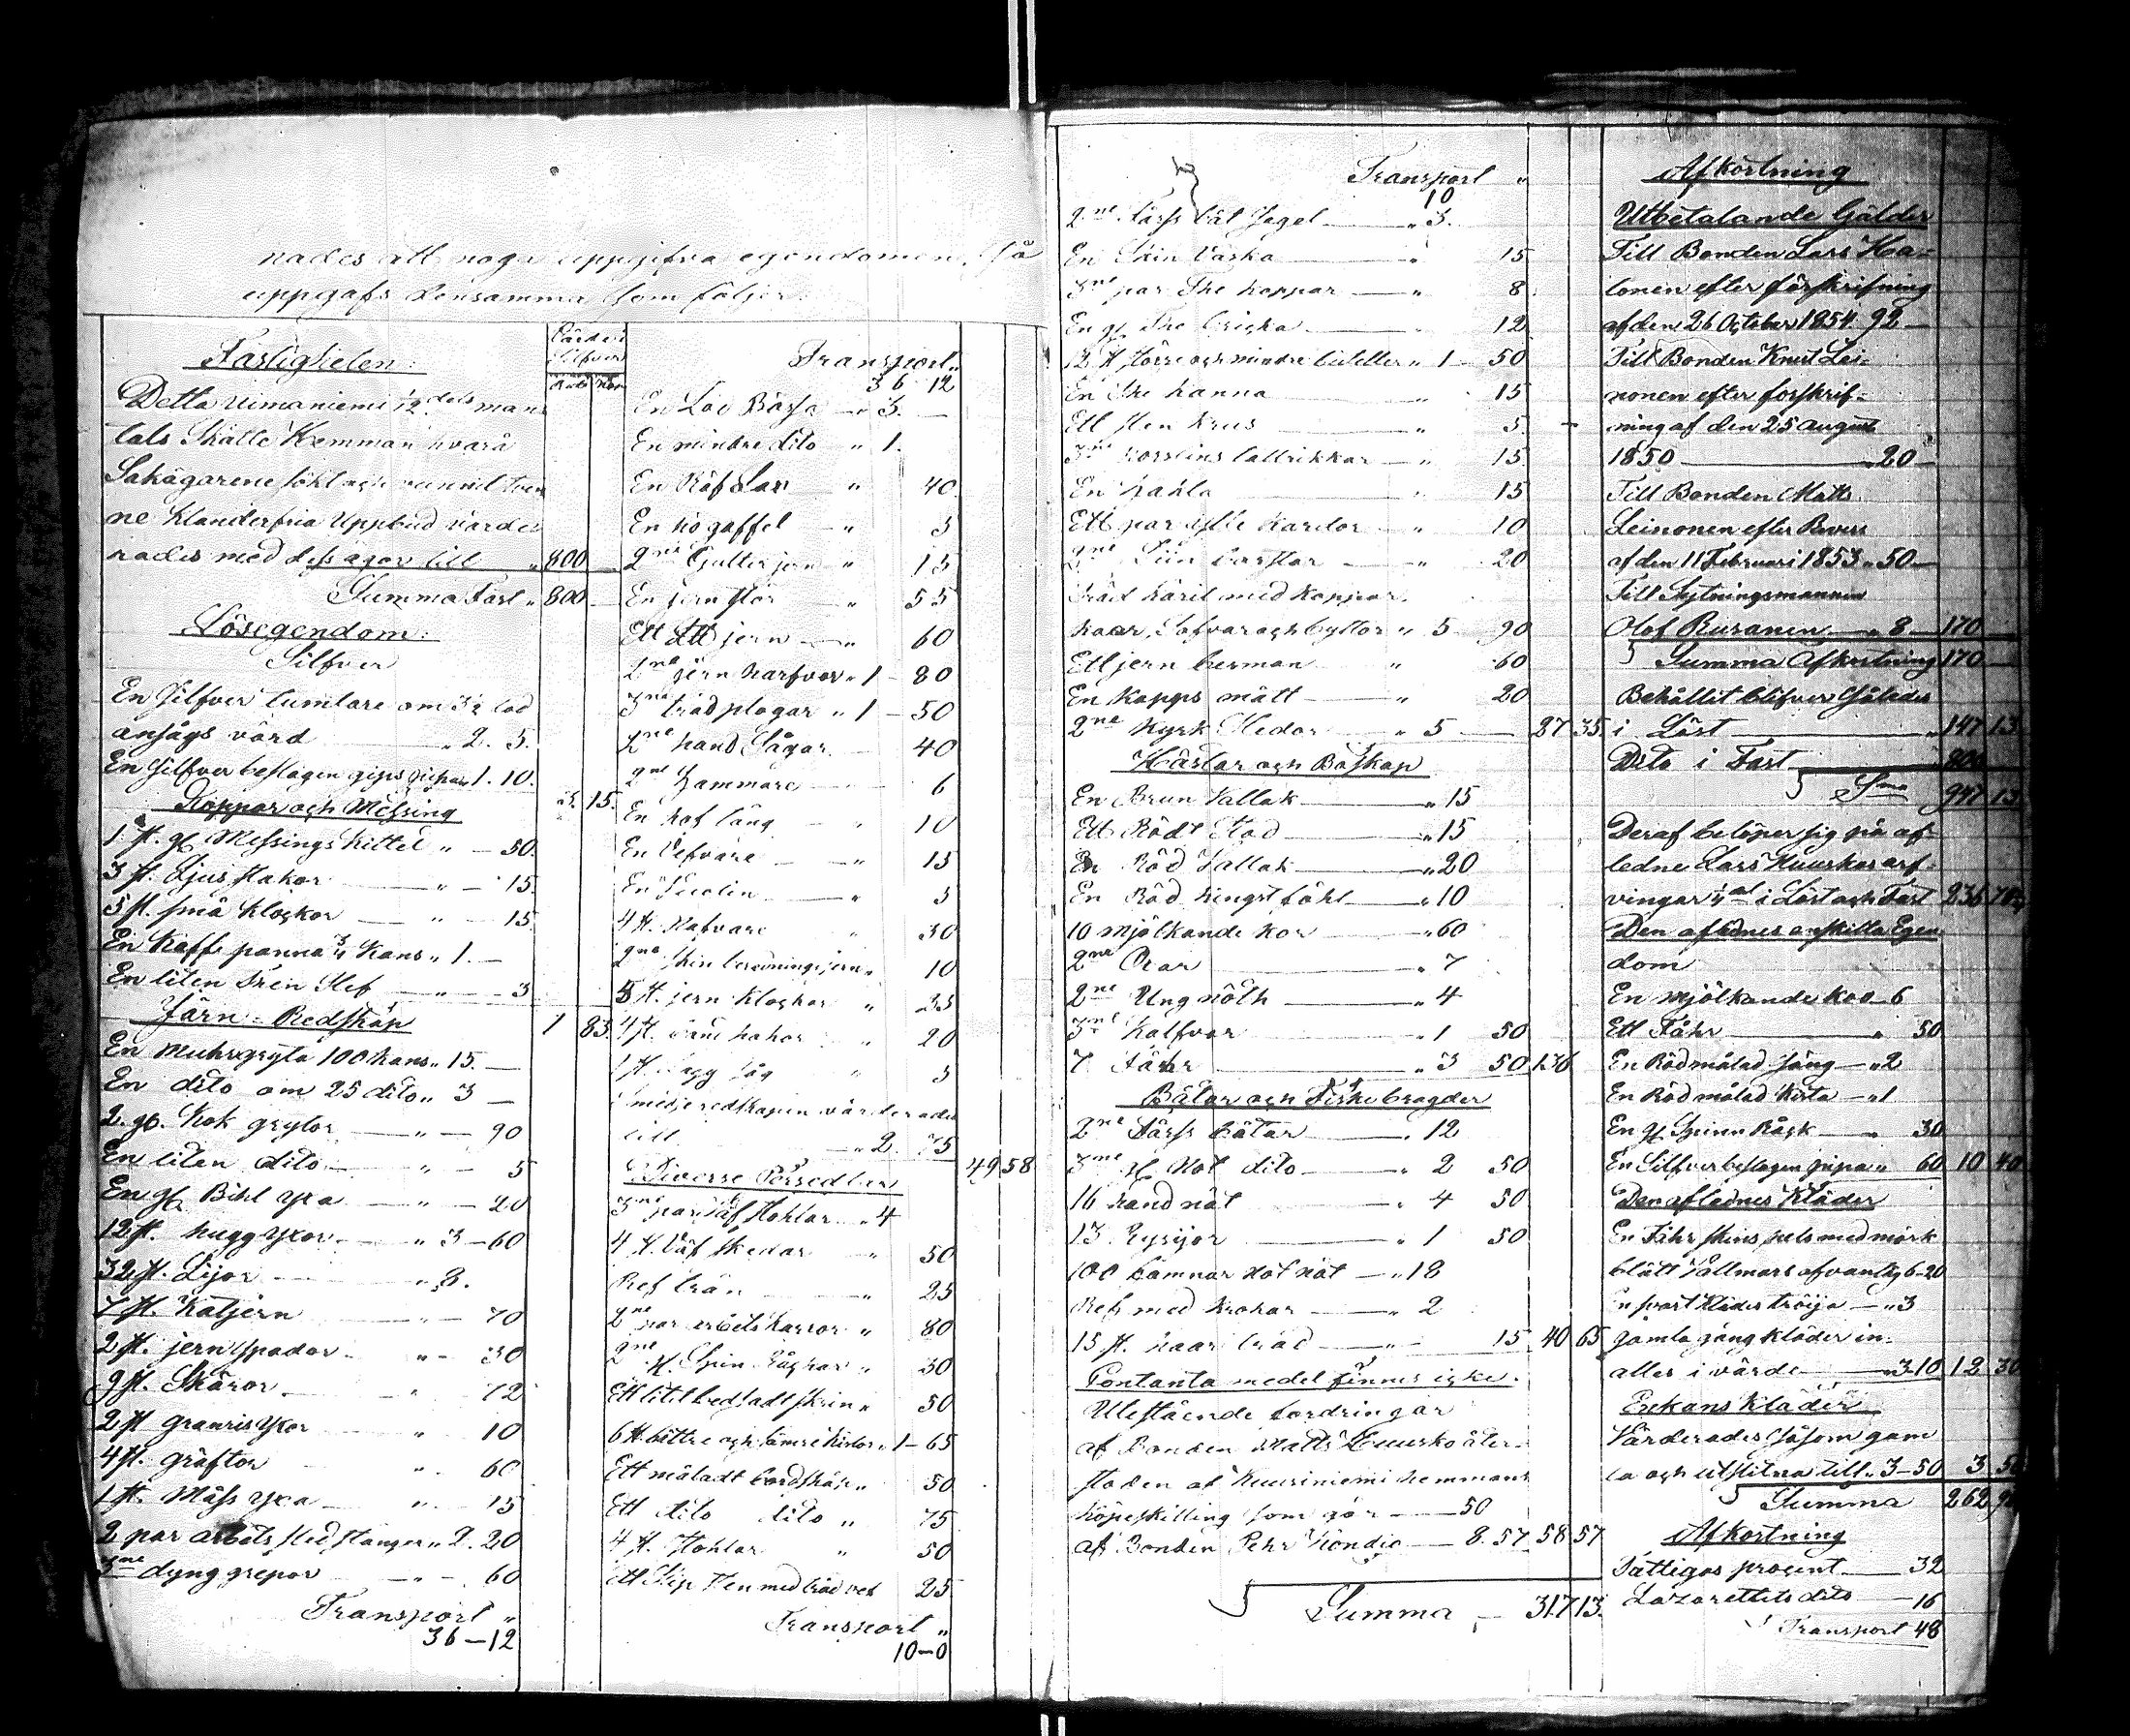 nades att noga uppgifva egendomen, så
uppgafs densamma som följer.
Värde i
Silfver
Rub Kop
Fastigheten:
Detta Uimaniemi 1/2 dels man
tals Skatte Hemman hvarå
Sakägarene sökt och vunnit tven
ne Klanderfria Uppbud värde
rades med dess ägor till " 800 —
Summa Fast " 800 —
Lösegendom:
Silfver
En Silfver tumlare om 3 1/2 lod
ansågs värd " 2. 5.
En Silfverbeslagen gips pipa " 1. 10. 3. 15.
Koppar och Messing
1 st. gl Messings kittel " — 50.
3 st. Ljusstakar " — 15.
5 st. små Klockor — " — 15.
En Kaffe panna 3/4 Kans " 1. —
En liten Tren Slef — " — 3 1 83.
Järn-Redskap
En Muhrgryta 100 Kans " 15. —
En dito om 25 dito " 3 —
2. gl. Kok grytor — " — 90
En liten dito — " — 5
En gl Bihl yxa — " — 20
12 st. hugg yxor — " 3 — 60
32 st. Lijor — " 8.
7 st. Katjern " — 70
2 st. jern spador — " — 30
9 st. Skäror " 72
2 st granris yxor " 10
4 st. gräftor " 60
1 st. Måss yxa — " 15
2 par arbets sled stänger " 2. 20
3ne dyng grepar — " — 60
Transport "
36 — 12
Transport "
36 12
En Lod Bössa — " 3. —
En mindre dito " 1.
En Räf Sax " 40.
En högaffel — " 5
2ne jern " 15
En jern stör " 55
Ett jern — " 60
2ne jern harfvar " 1 — 80
3ne träd plogar " 1 — 50
2ne hand Sågar — 40
2ne Hammare — 6
En hof tång " 10
En — " 15
En — " 5
4 st. Nafvare " 30
2ne Skin beredningsjern " 10
5 st. jern Klockar " 25
4 st. hakar " 20
1 st. såg " 5
Smidjeredskapen värderades
till " 2. 75 49 58
Diverse Persedlar
3ne par Väf Stohlar " 4
4 st. Väf skedar " 50
Ref trän " 25
2ne par arbets kärror " 80
2ne st. Spin Råckar " 30
Ett litet besladt skrin " 50
6 st. bättre och sämre kistor " 1 — 65
Ett måladt bordskåp " 50
Ett dito dito " 75
4 st. Stohlar " 50
Ett Slip sten med träd vef 25
Transport "
10 — 0
Transport "
10
2ne Färss båt Segel " 3.
En Skin Väska " 15
3ne par The koppar — " 8
En gl The bricka " 12
12 st större och mindre buteller " 1 — 50
En The kanna " 15
Ett sten krus " 5.
3ne porslins tallrikkar — " 15
En kakla " 15
Ett par ylle kardor — " 10
2ne Liin borstar — " 20
Träd käril med koppar.
kaar, Sofvar och byttor " 5 — 90
Ett jern besman " 60
En Kapps mått " 20
2ne Kyrk Sledar — " 5 — 87 35.
Hästar och Boskap
En Brun Vallak " 15
Ett Rödt Stod " 15
En Röd Vallak " 20
En Röd hingst fåhl " 10
10 mjölkande kor " 60
2ne Oxar " 7
2ne Ung nöth " 4
3ne Kalfvar " 1 50
7 Fåhr " 3 50 136
Båtar och Fiske bragder
2ne Färss båtar " 12
3ne gl Not dito " 2 50
16 hand nät " 4 50
13. Rysjor " 1 50
100 famnar Not nöt — " 18
Ref med krokar — " 2
15 st. haar träd — " — 15 40 65
Contanta medel finnes icke.
Utestående fordringar
af Bonden Matts Kuurko åter-
stoden af Kuusiniemi hemmans
köpeskilling som gör — 50
af Bonden Pehr Köndic — 8. 57 58 57
Summa — 317 13.
Afkortning
Utbetalande Gälder
Till Bonden Lars Ha-
tonen efter förskrifning
af den 26 October 1854. 92 —
Till Bonden Knut Lei-
nonen efter förskrif-
ning af den 25 August
1850 — 20 —
Till Bonden Matts
Leinonen efter Revers
af den 11 Februari 1853 " 50 —
Till Sytningsmannen
Olof Ruranen — " 8 — 170
Summa Afkortning 170 —
Behållit blifver Således
i Löst — 147 13
Dito i Fast — 800
S:ma 947 13
Deraf belöper sig på af-
ledne Lars Kuurkos arf-
vingar 1/4 del i Löst och Fast 236
Den aflednes enskilta Egen
dom
En mjölkande ko — 6
Ett Fåhr — " 50
En Rödmålad säng — " 2
En Röd målad Kista — " 1
En gl Spinn Råck — " 30
En Silfverbeslagen pipa " 60 10 40
Den aflednes Kläder
En Fåhr skins pels med mörk
blått Vallmars ofvantyg 6-20
En svart Klädes tröija — " 3
gamla gång kläder in-
alles i värde — " 3-10 12 30
Enkans Kläder
Värderades såsom gam
la och utslitna till " 3-50 3 50
Summa 262 90
Afkortning
Fattigas procent — 32
Lazarettets dito — 16
Transport 48